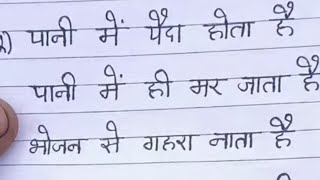 २) पानी में पैदा होता है
पानी में ही मर जाता है
भोजन से गहरा नाता है